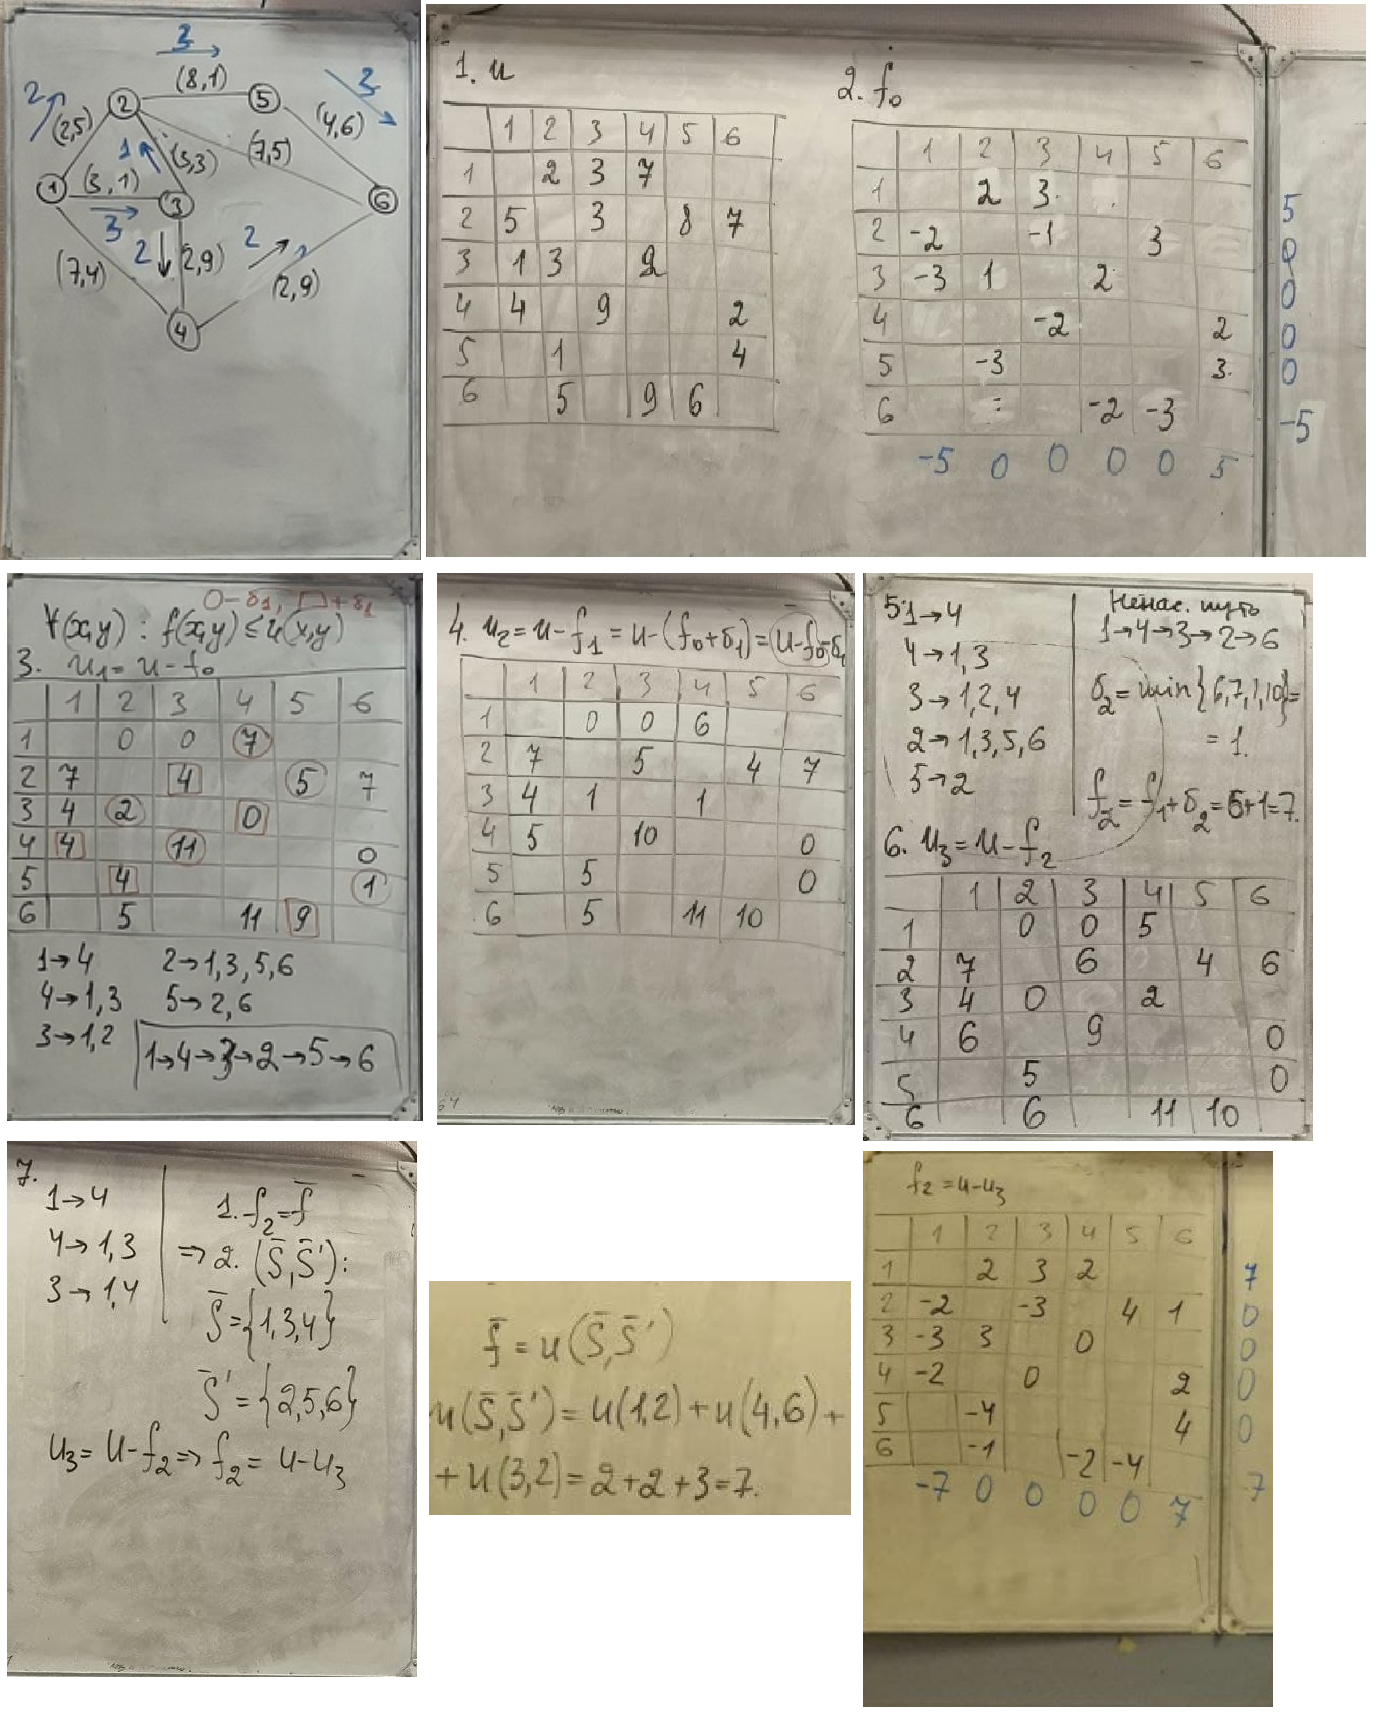 3
2
(8,1)
3
(2,5)
2
5
(4,6)
1
(3,3)
(7,5)
1
(3,1)
3
6
3
2
(2,9)
2
(7,4)
(2,9)
4
1. u
1 2 3 4 5 6
1 2 3 7
2 5 3 8 7
3 1 3 2
4 4 9 2
5 1 4
6 5 9 6
2. f₀
1 2 3 4 5 6
1 2 3 5
2 -2 -1 3 0
3 -3 1 2 0
4 -2 2 0
5 -3 3 0
6 -2 -3 -5
-5 0 0 0 0 5
○-δ₁, □+δ₁
∀(x,y) : f(x,y) ≤ u(x,y)
3. u₁ = u - f₀
1 2 3 4 5 6
1 0 0 7
2 7 4 5 7
3 4 2 0
4 4 11 0
5 4 1
6 5 11 9
1→4 2→1,3,5,6
4→1,3 5→2,6
3→1,2 1→4→3→2→5→6
4. u₂ = u - f₁ = u - (f₀+δ₁) = u - f₀ - δ₁
1 2 3 4 5 6
1 0 0 6
2 7 5 4 7
3 4 1 1
4 5 10 0
5 5 0
6 5 11 10
5. 1→4 Ненас. путь
4→1,3 1→4→3→2→6
3→1,2,4 δ₂ = min{6,7,1,10} =
2→1,3,5,6 = 1.
5→2 f₂ = f₁+δ₂ = 6+1=7.
6. u₃ = u - f₂
1 2 3 4 5 6
1 0 0 5
2 7 6 4 6
3 4 0 2
4 6 9 0
5 5 0
6 6 11 10
7.
1→4 1. f₂ = f̄
4→1,3 ⇒ 2. (S̄, S̄'):
3→1,4 S̄ = {1,3,4}
S̄' = {2,5,6}
u₃ = u - f₂ ⇒ f₂ = u - u₃
f̄ = u(S̄, S̄')
u(S̄, S̄') = u(1,2) + u(4,6) +
+ u(3,2) = 2+2+3=7.
f₂ = u - u₃
1 2 3 4 5 6
1 2 3 2 7
2 -2 -3 4 1 0
3 -3 3 0 0
4 -2 0 2 0
5 -4 4 0
6 -1 -2 -4 7
-7 0 0 0 0 7